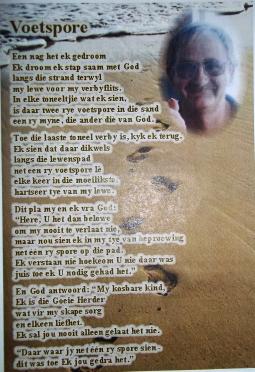 Voetspore
Een nag het ek gedroom
Ek droom ek stap saam met God
langs die strand terwyl
my lewe voor my verbyflits.
In elke toneeltjie wat ek sien,
is daar twee rye voetspore in die sand
een ry myne, die ander die van God.
Toe die laaste toneel verby is, kyk ek terug.
Ek sien dat daar dikwels
langs die lewenspad
net een ry voetspore lê
elke keer in die moeilikste
hartseer tye van my lewe.
Dit pla my en ek vra God:
"Here, U het dan belowe
om my nooit te verlaat nie,
maar nou sien ek in my tye van beproewing
net een ry spore op die pad.
Ek verstaan nie hoekom U nie daar was
juis toe ek U nodig gehad het."
En God antwoord: "My kosbare kind,
Ek is die Goeie Herder
wat vir my skape sorg
en elkeen liefhet.
Ek sal jou nooit alleen gelaat het nie.
"Daar waar jy net één ry spore sien-
dit was toe Ek jou gedra het."